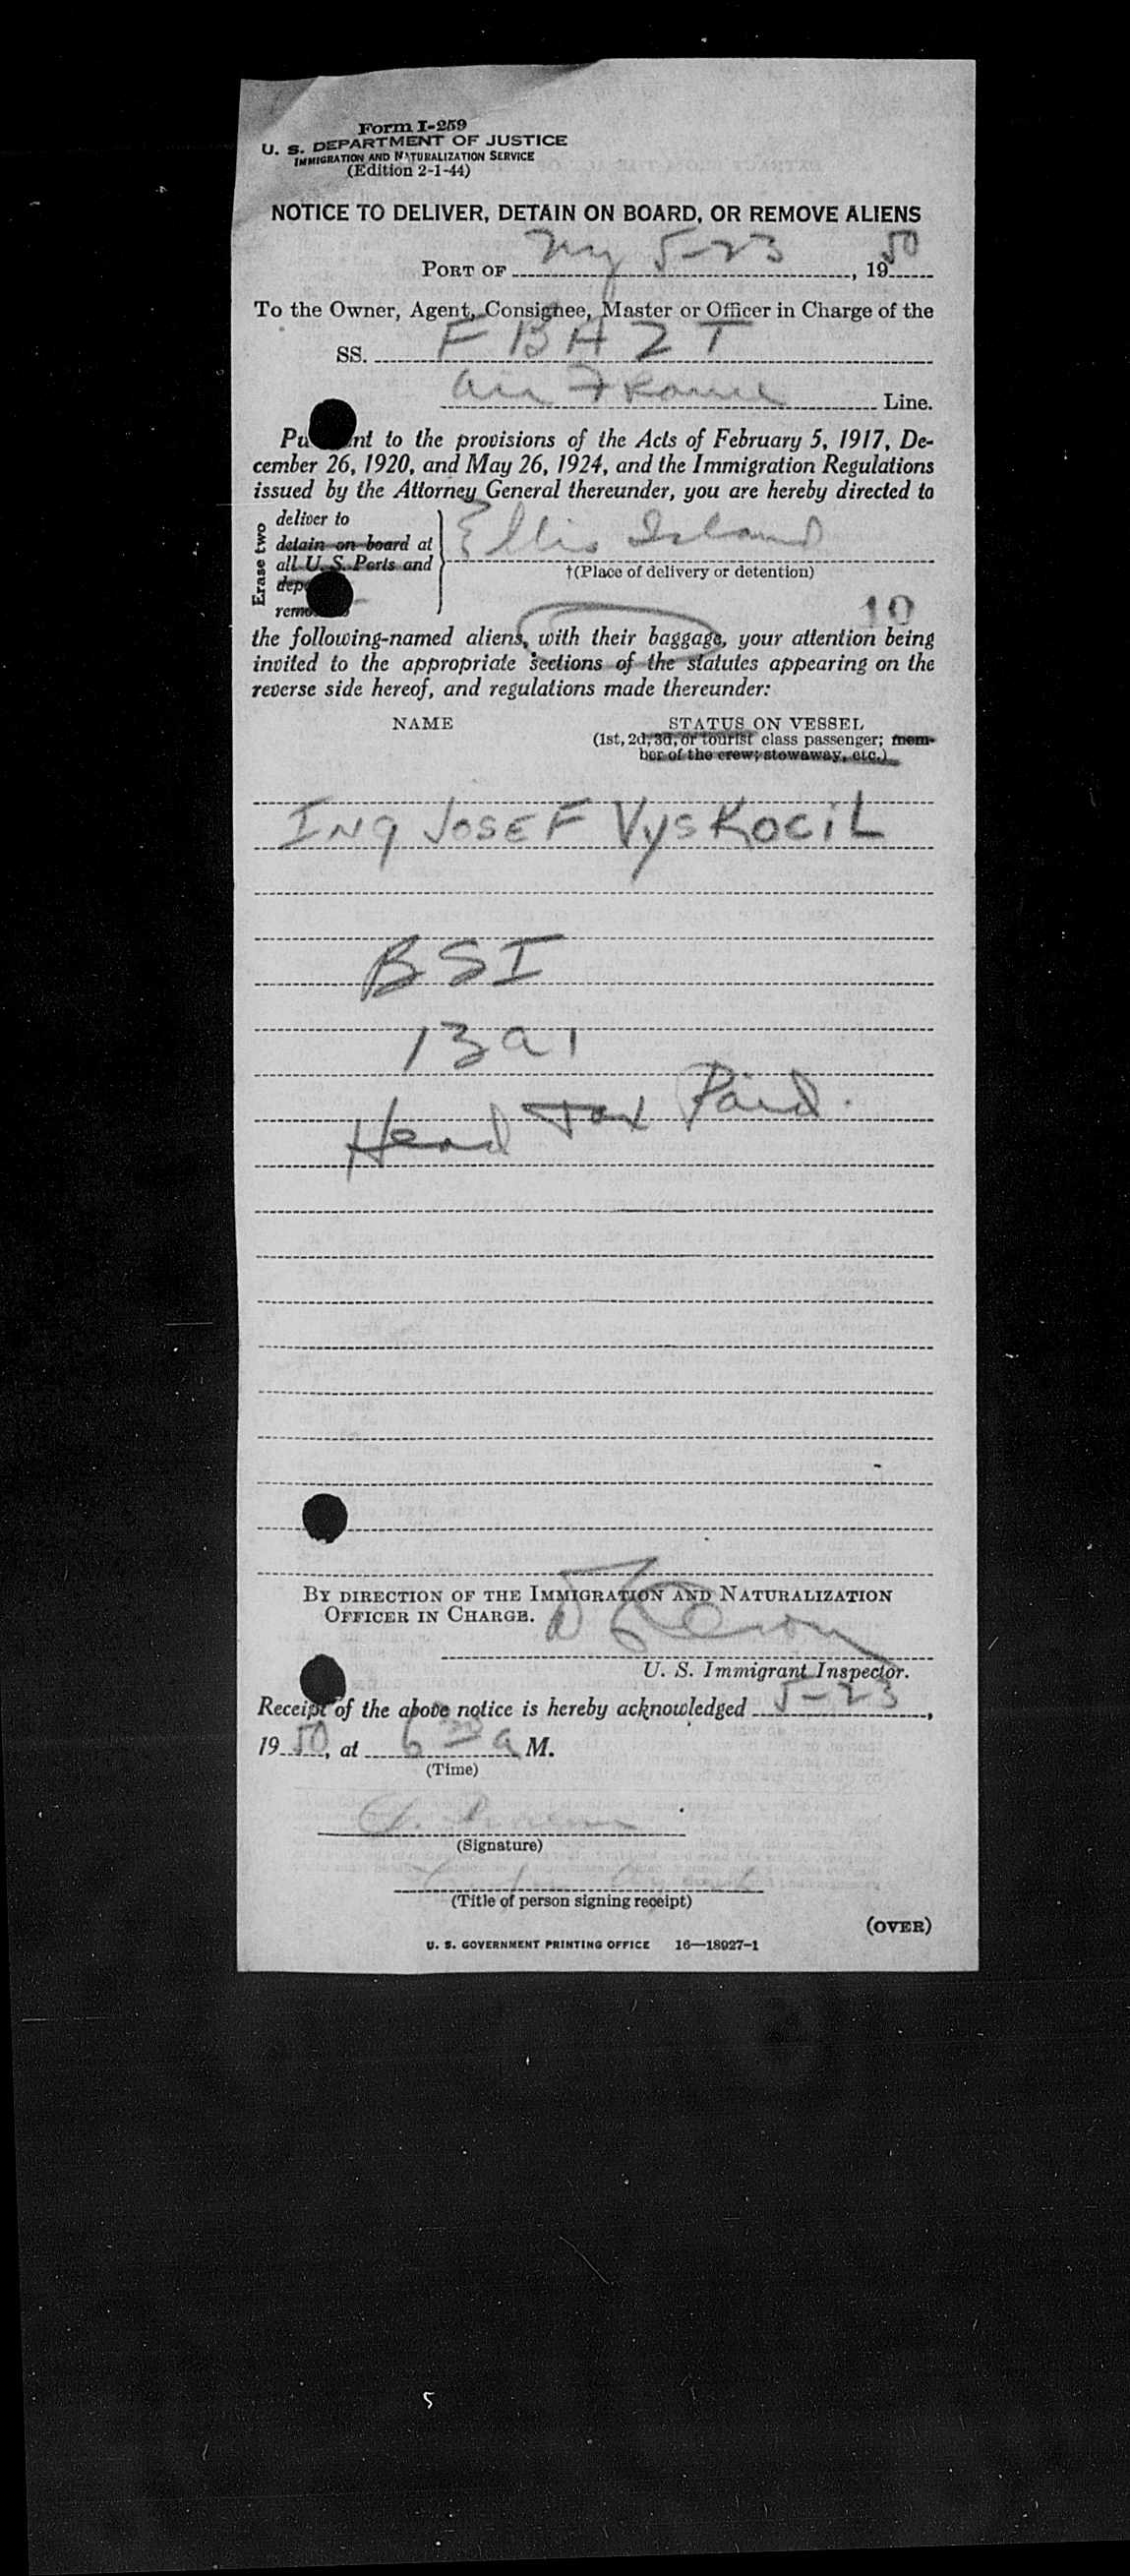 Form I-259
U. S. DEPARTMENT OF JUSTICE
IMMIGRATION AND NATURALIZATION SERVICE
(Edition 2-1-44)
NOTICE TO DELIVER, DETAIN ON BOARD, OR REMOVE ALIENS
PORT OF NY 5-23, 1950
To the Owner, Agent, Consignee, Master or Officer in Charge of the
SS. F BAZT
Air France Line.
Pu nt to the provisions of the Acts of February 5, 1917, De-
cember 26, 1920, and May 26, 1924, and the Immigration Regulations
issued by the Attorney General thereunder, you are hereby directed to
Erase two
deliver to
detain on board at
all U. S. Ports and
dep
remo
Ellis Island
†(Place of delivery or detention)
10
the following-named aliens, with their baggage, your attention being
invited to the appropriate sections of the statutes appearing on the
reverse side hereof, and regulations made thereunder:
NAME STATUS ON VESSEL
(1st, 2d, 3d, or tourist class passenger; mem-
ber of the crew; stowaway, etc.)
Ing Josef Vyskocil
BSI
13a1
Head Tax Paid.
BY DIRECTION OF THE IMMIGRATION AND NATURALIZATION
OFFICER IN CHARGE.
U. S. Immigrant Inspector.
Receipt of the above notice is hereby acknowledged 5-23,
1950, at 6 30 a M.
(Time)
(Signature)
(Title of person signing receipt)
(OVER)
U. S. GOVERNMENT PRINTING OFFICE 16—18927-1
5